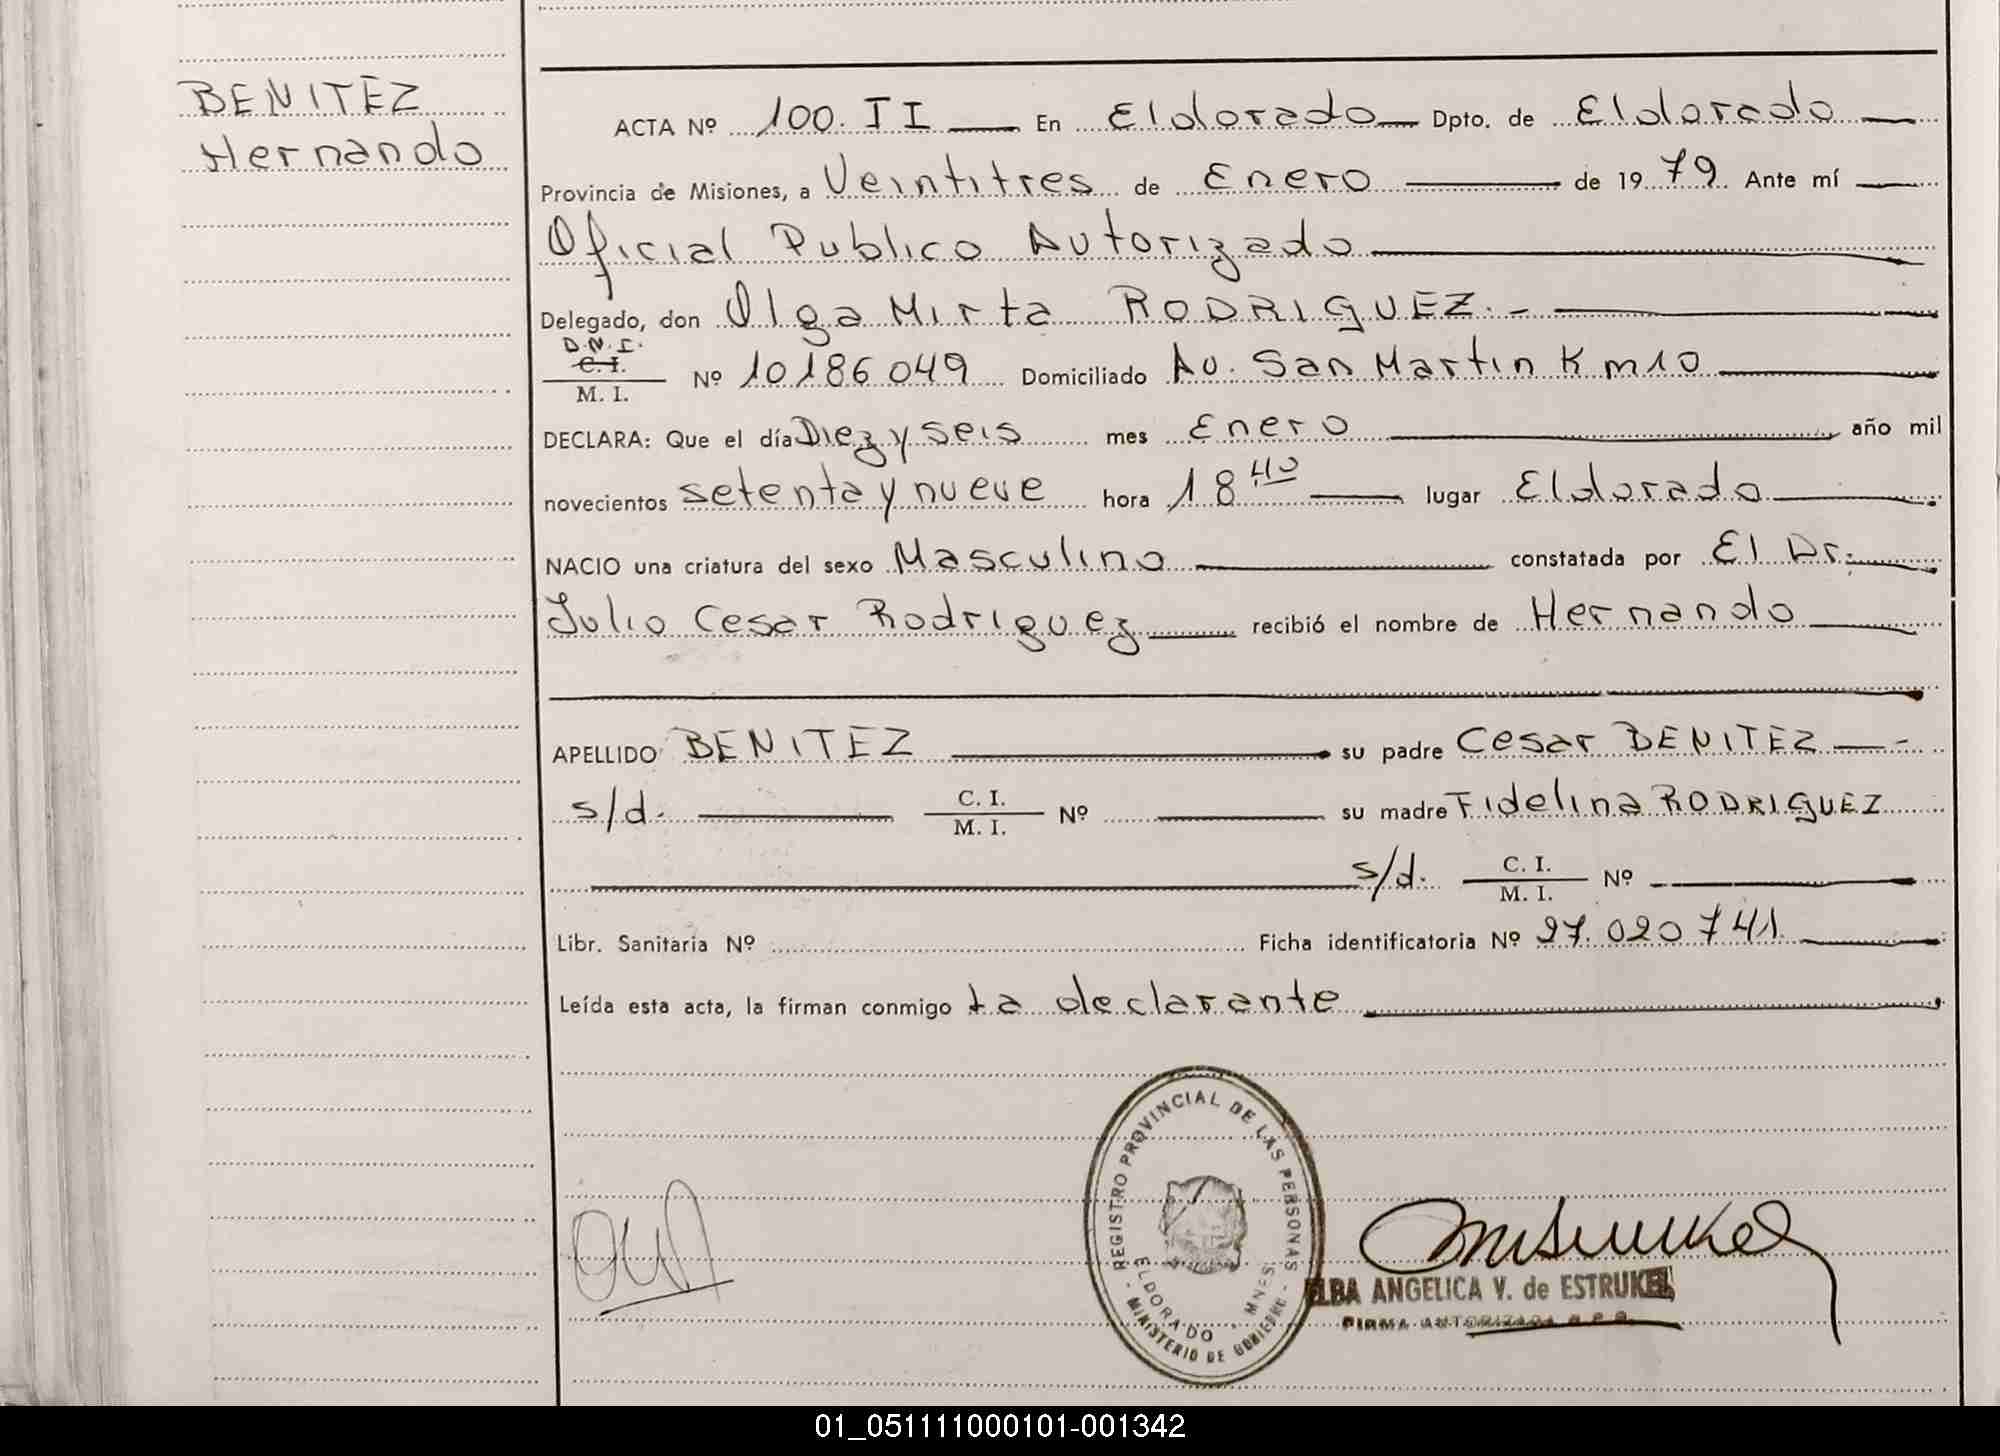 BENITEZ
Hernando
ACTA Nº 100. II En Eldorado Dpto. de Eldorado
Provincia de Misiones, a Veintitres de Enero de 1979. Ante mí
Oficial Publico Autorizado
Delegado, don Olga Mirta RODRIGUEZ.-
D.N.I.
C. I.
M. I. Nº 10186049 Domiciliado Av. San Martin Km10
DECLARA: Que el día Diez y seis mes Enero año mil
novecientos setenta y nueve hora 18 40 lugar Eldorado
NACIO una criatura del sexo Masculino constatada por El Dr.
Julio Cesar Rodriguez recibió el nombre de Hernando
APELLIDO BENITEZ su padre Cesar BENITEZ
s/d. C. I. M. I. Nº su madre Fidelina RODRIGUEZ
s/d. C. I. M. I. Nº
Libr. Sanitaria Nº Ficha identificatoria Nº 27.020741
Leída esta acta, la firman conmigo La declarante
REGISTRO PROVINCIAL DE LAS PERSONAS
ELDORADO - MNES.
- MINISTERIO DE GOBIERNO -
ELBA ANGELICA V. de ESTRUKEL
FIRMA AUTORIZADA R.P.P.
01_051111000101-001342